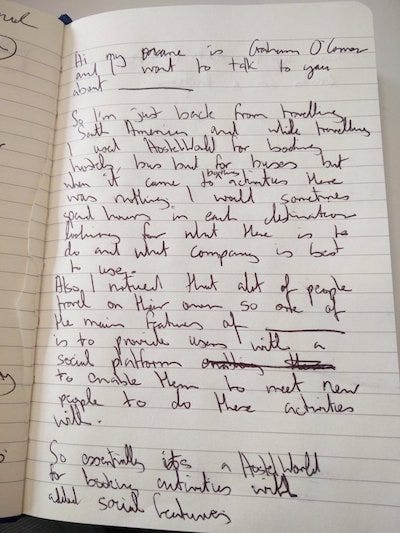 Hi my name is Graham O'Connor
and I want to talk to you
about ________
So I'm just back from travelling
South America and while travelling
I used HostelWorld for booking
hostels bus but for buses but
when it came to booking activities there
was nothing. I would sometimes
spend hours in each destination
looking for what there is to
do and what company is best
to use.
Also, I noticed that alot of people
travel on their own so one of
the main features of ________
is to provide users with a
social platform
to enable them to meet new
people to do these activities
with.
So essentially its a HostelWorld
for booking activities with
added social features